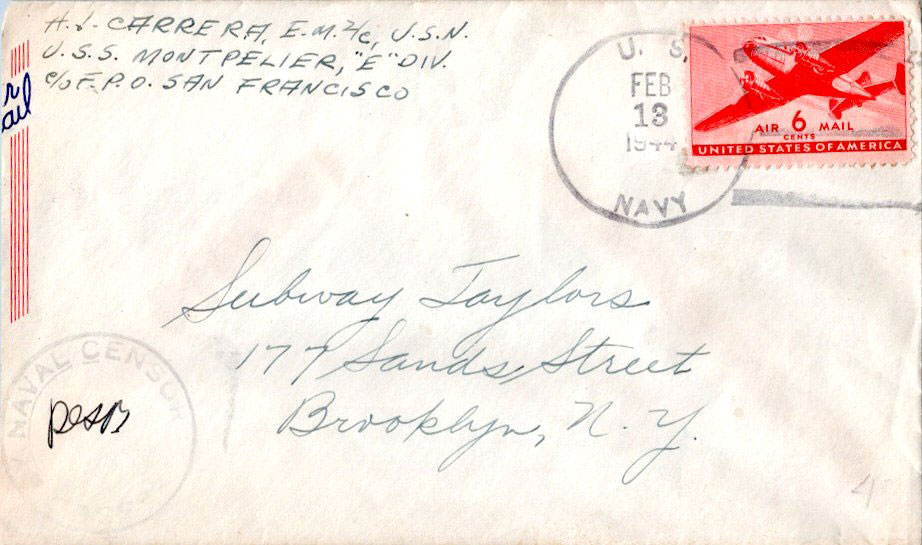 A. J. CARRERA, E.M. 2/c, U.S.N.
U.S.S. MONTPELIER, "E" DIV.
c/o F.P.O. SAN FRANCISCO
ail
U. S.
FEB
13
1944
NAVY
AIR 6 MAIL
CENTS
UNITED STATES OF AMERICA
Subway Taylors
177 Sands Street
Brooklyn, N. Y.
NAVAL CENSOR